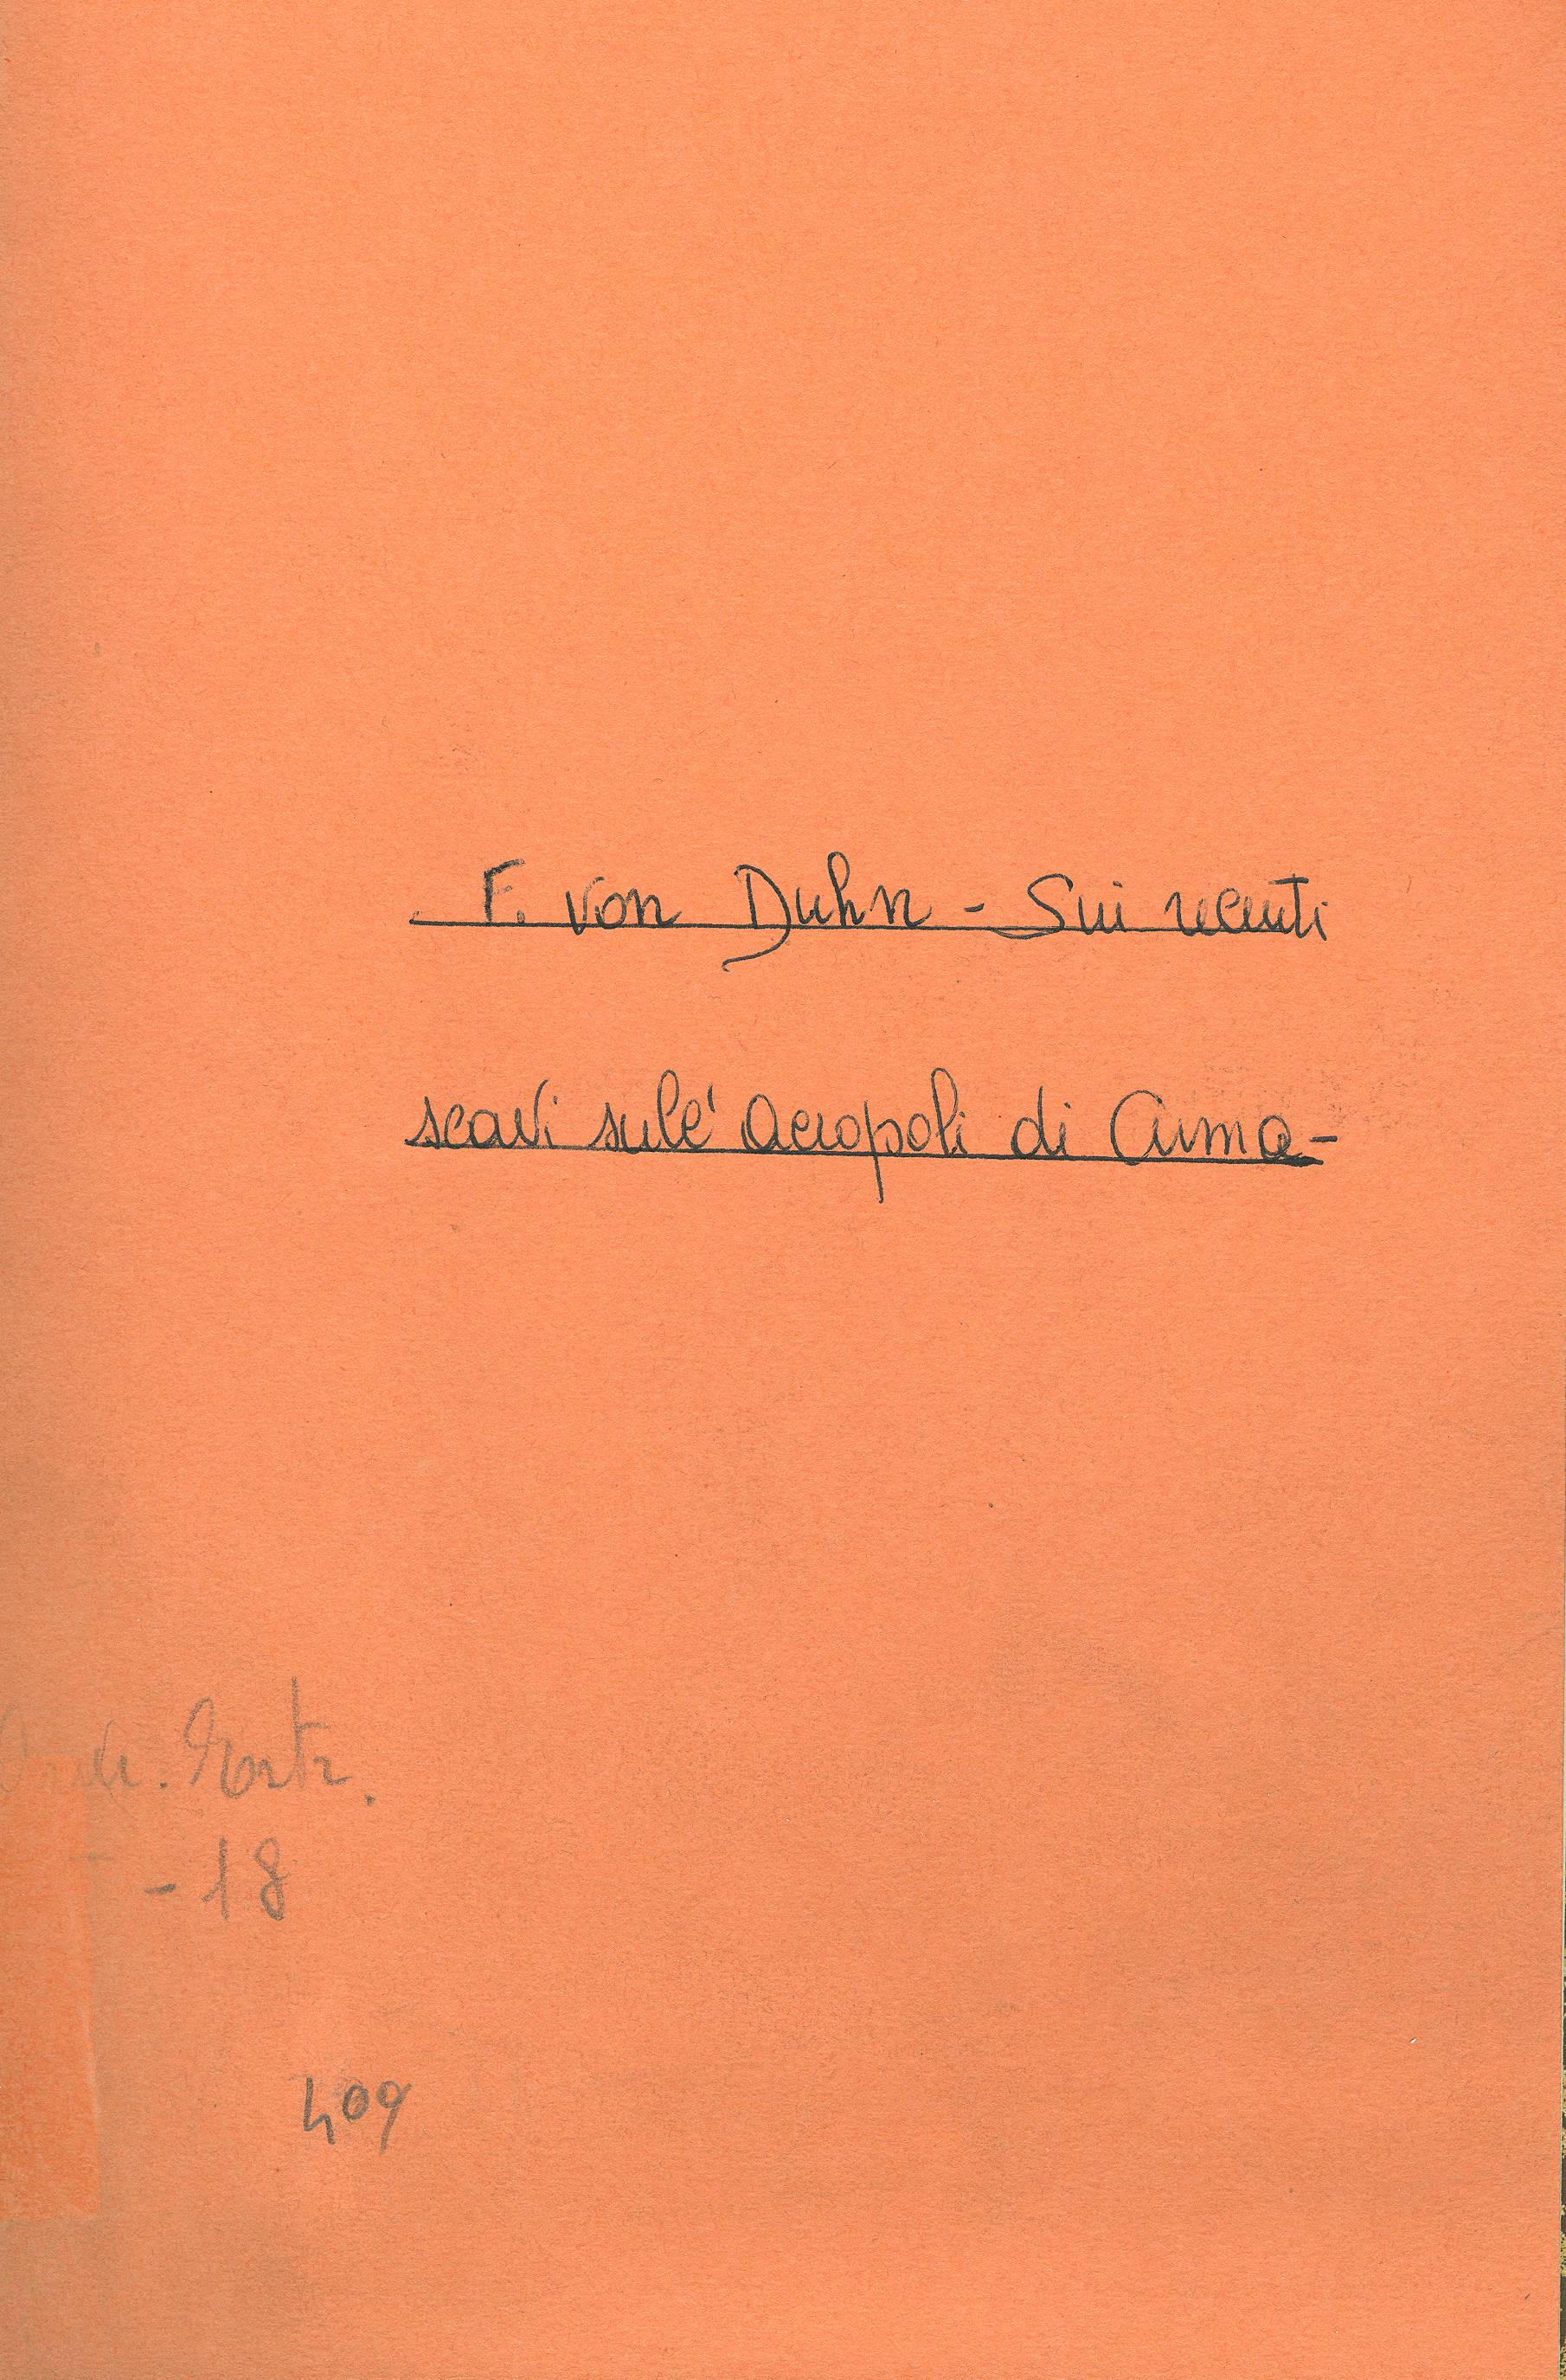 F. von Duhn - Sui recenti
scavi sull' Acropoli di Cuma -
- 18
409